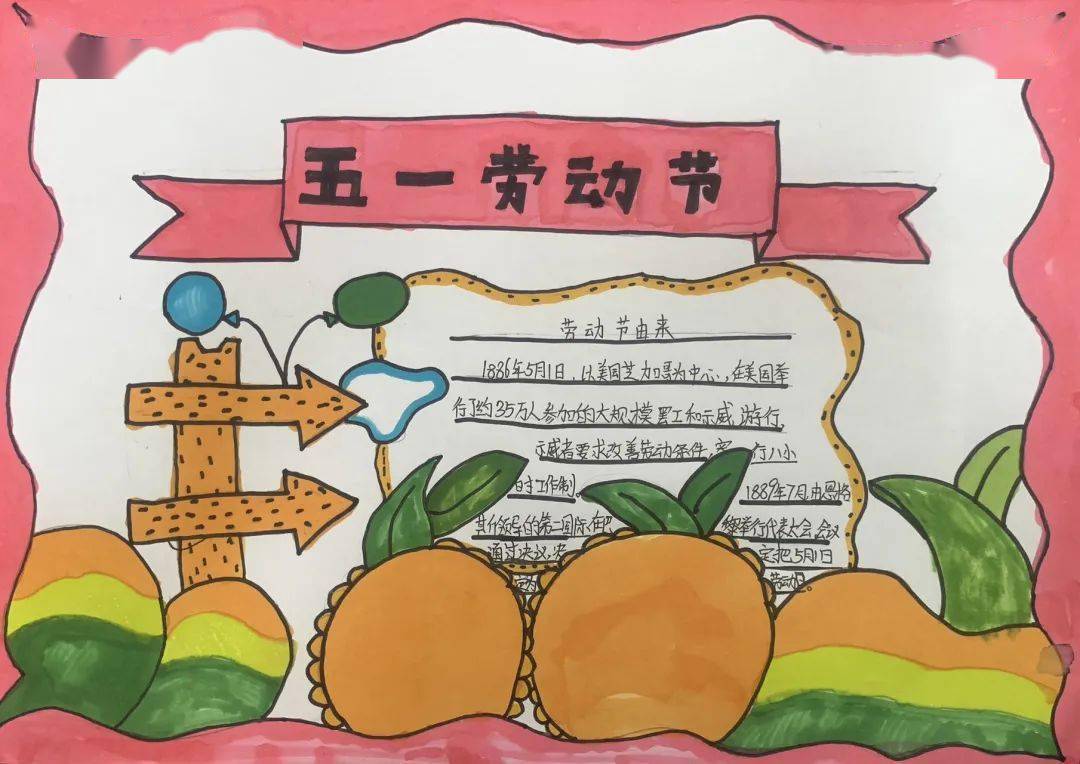 五一劳动节
劳动节由来
1886年5月1日，以美国芝加哥为中心，在美国举
行了约35万人参加的大规模罢工和示威游行，
示威者要求改善劳动条件，实 行八小
时工作制。 1889年7月，由恩格
其什领导的第二国际，在巴 黎举行代表大会，会议
通过决议，决 定把5月1日
定为 劳动